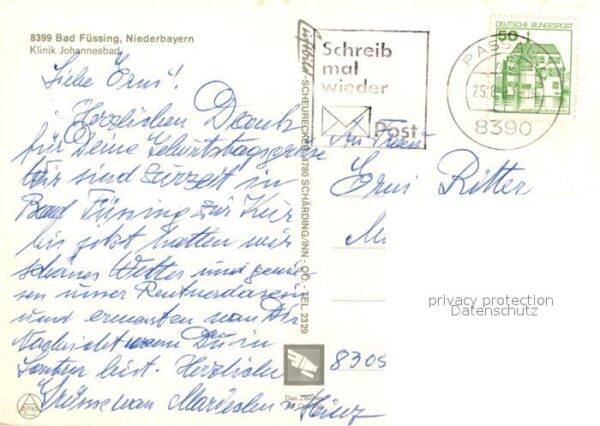 8399 Bad Füssing, Niederbayern
Klinik Johannesbad
Liebe Erni!
Herzlichen Dank
für Deine Geburtstagsgrüsse
Wir sind zurzeit in
Bad Füssing zur Kur
bis jetzt hatten wir
schönes Wetter und genies
sen unser Rentnerdasein
und erwarten von Dir
Nachricht wann Du in
bist. Herzliche
Grüsse von und Heinz
Luftbild SCHEURECKER, 4780 SCHÄRDING/INN · OÖ · TEL. 2329
Schreib
mal
wieder
Post
DEUTSCHE BUNDESPOST
50
PASSAU
25.8
8390
An Frau
Erni Ritter
privacy protection
Datenschutz
8305
Das Zeichen